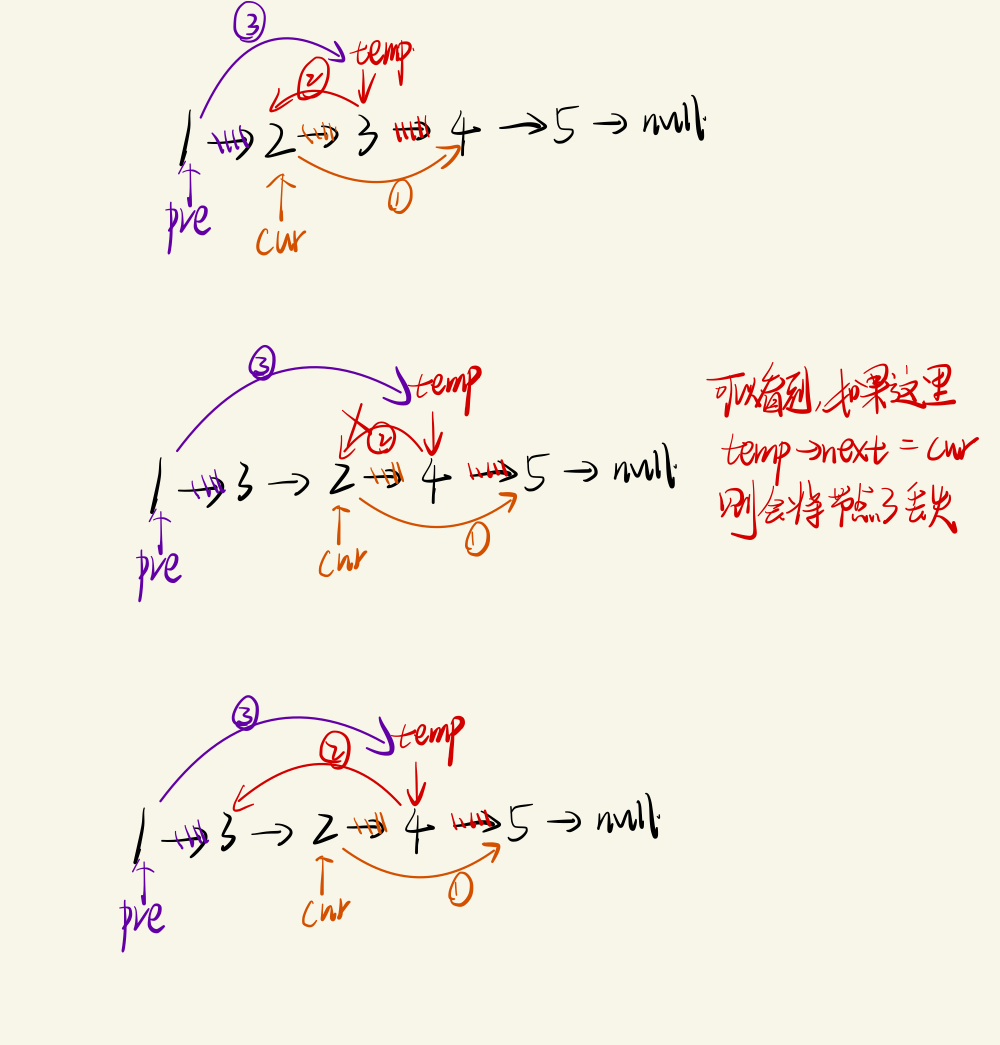 ③
temp
②
1 → 2 → 3 → 4 → 5 → null
①
pre
cur
③
temp
②
1 → 3 → 2 → 4 → 5 → null
①
cur
pre
可以看到,如果这里
temp→next = cur
则会将节点3丢失
③
temp
②
1 → 3 → 2 → 4 → 5 → null
①
cur
pre